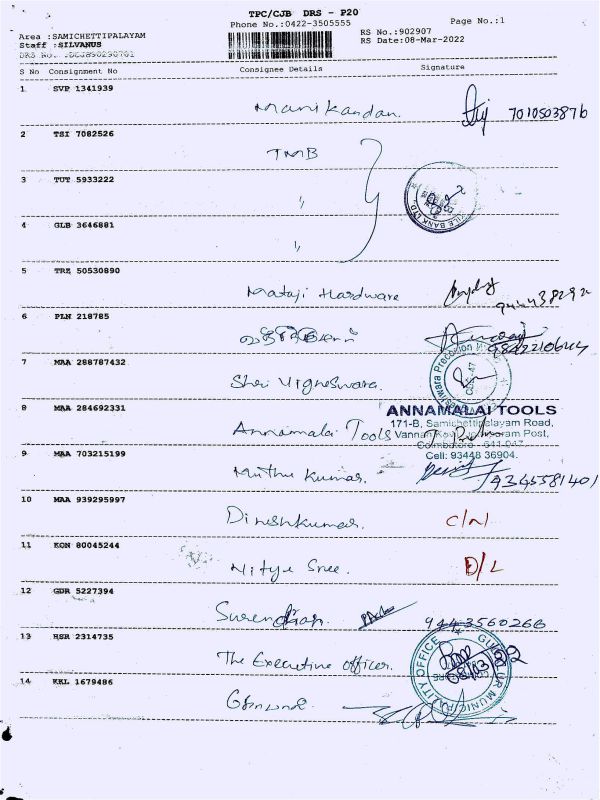 TPC/CJB DRS - P20
Phone No.:0422-3505555
Page No.:1
Area :SAMICHETTIPALAYAM
Staff :SILVANUS
RS No.:902907
RS Date:08-Mar-2022
S No Consignment No Consignee Details Signature
1 SVP 1341939 Manikandan. 7010503876
2 TSI 7082526 TMB
3 TUT 5933222 "
4 GLB 3646881 "
BANK LTD.
5 TRZ 50530890 Mataji Hardware
6 PLN 218785 9842210644
7 MAA 288787432 Shri Vigneswara.
8 MAA 284692331 Annamalai Tools
ANNAMALAI TOOLS
171-B, Samichettipalayam Road,
Coimbatore - 641 047.
Cell: 93448 36904.
9 MAA 703215199 Muthu Kumar. 9345581401
10 MAA 939295997 Dineshkumar. C/N
11 KON 80045244 Nitya Sree. D/L
12 GDR 5227394 Surendran 9443560266
13 HSR 2314735 The Executive officer.
GUDALUR MUNICIPALITY OFFICE
14 KKL 1679486